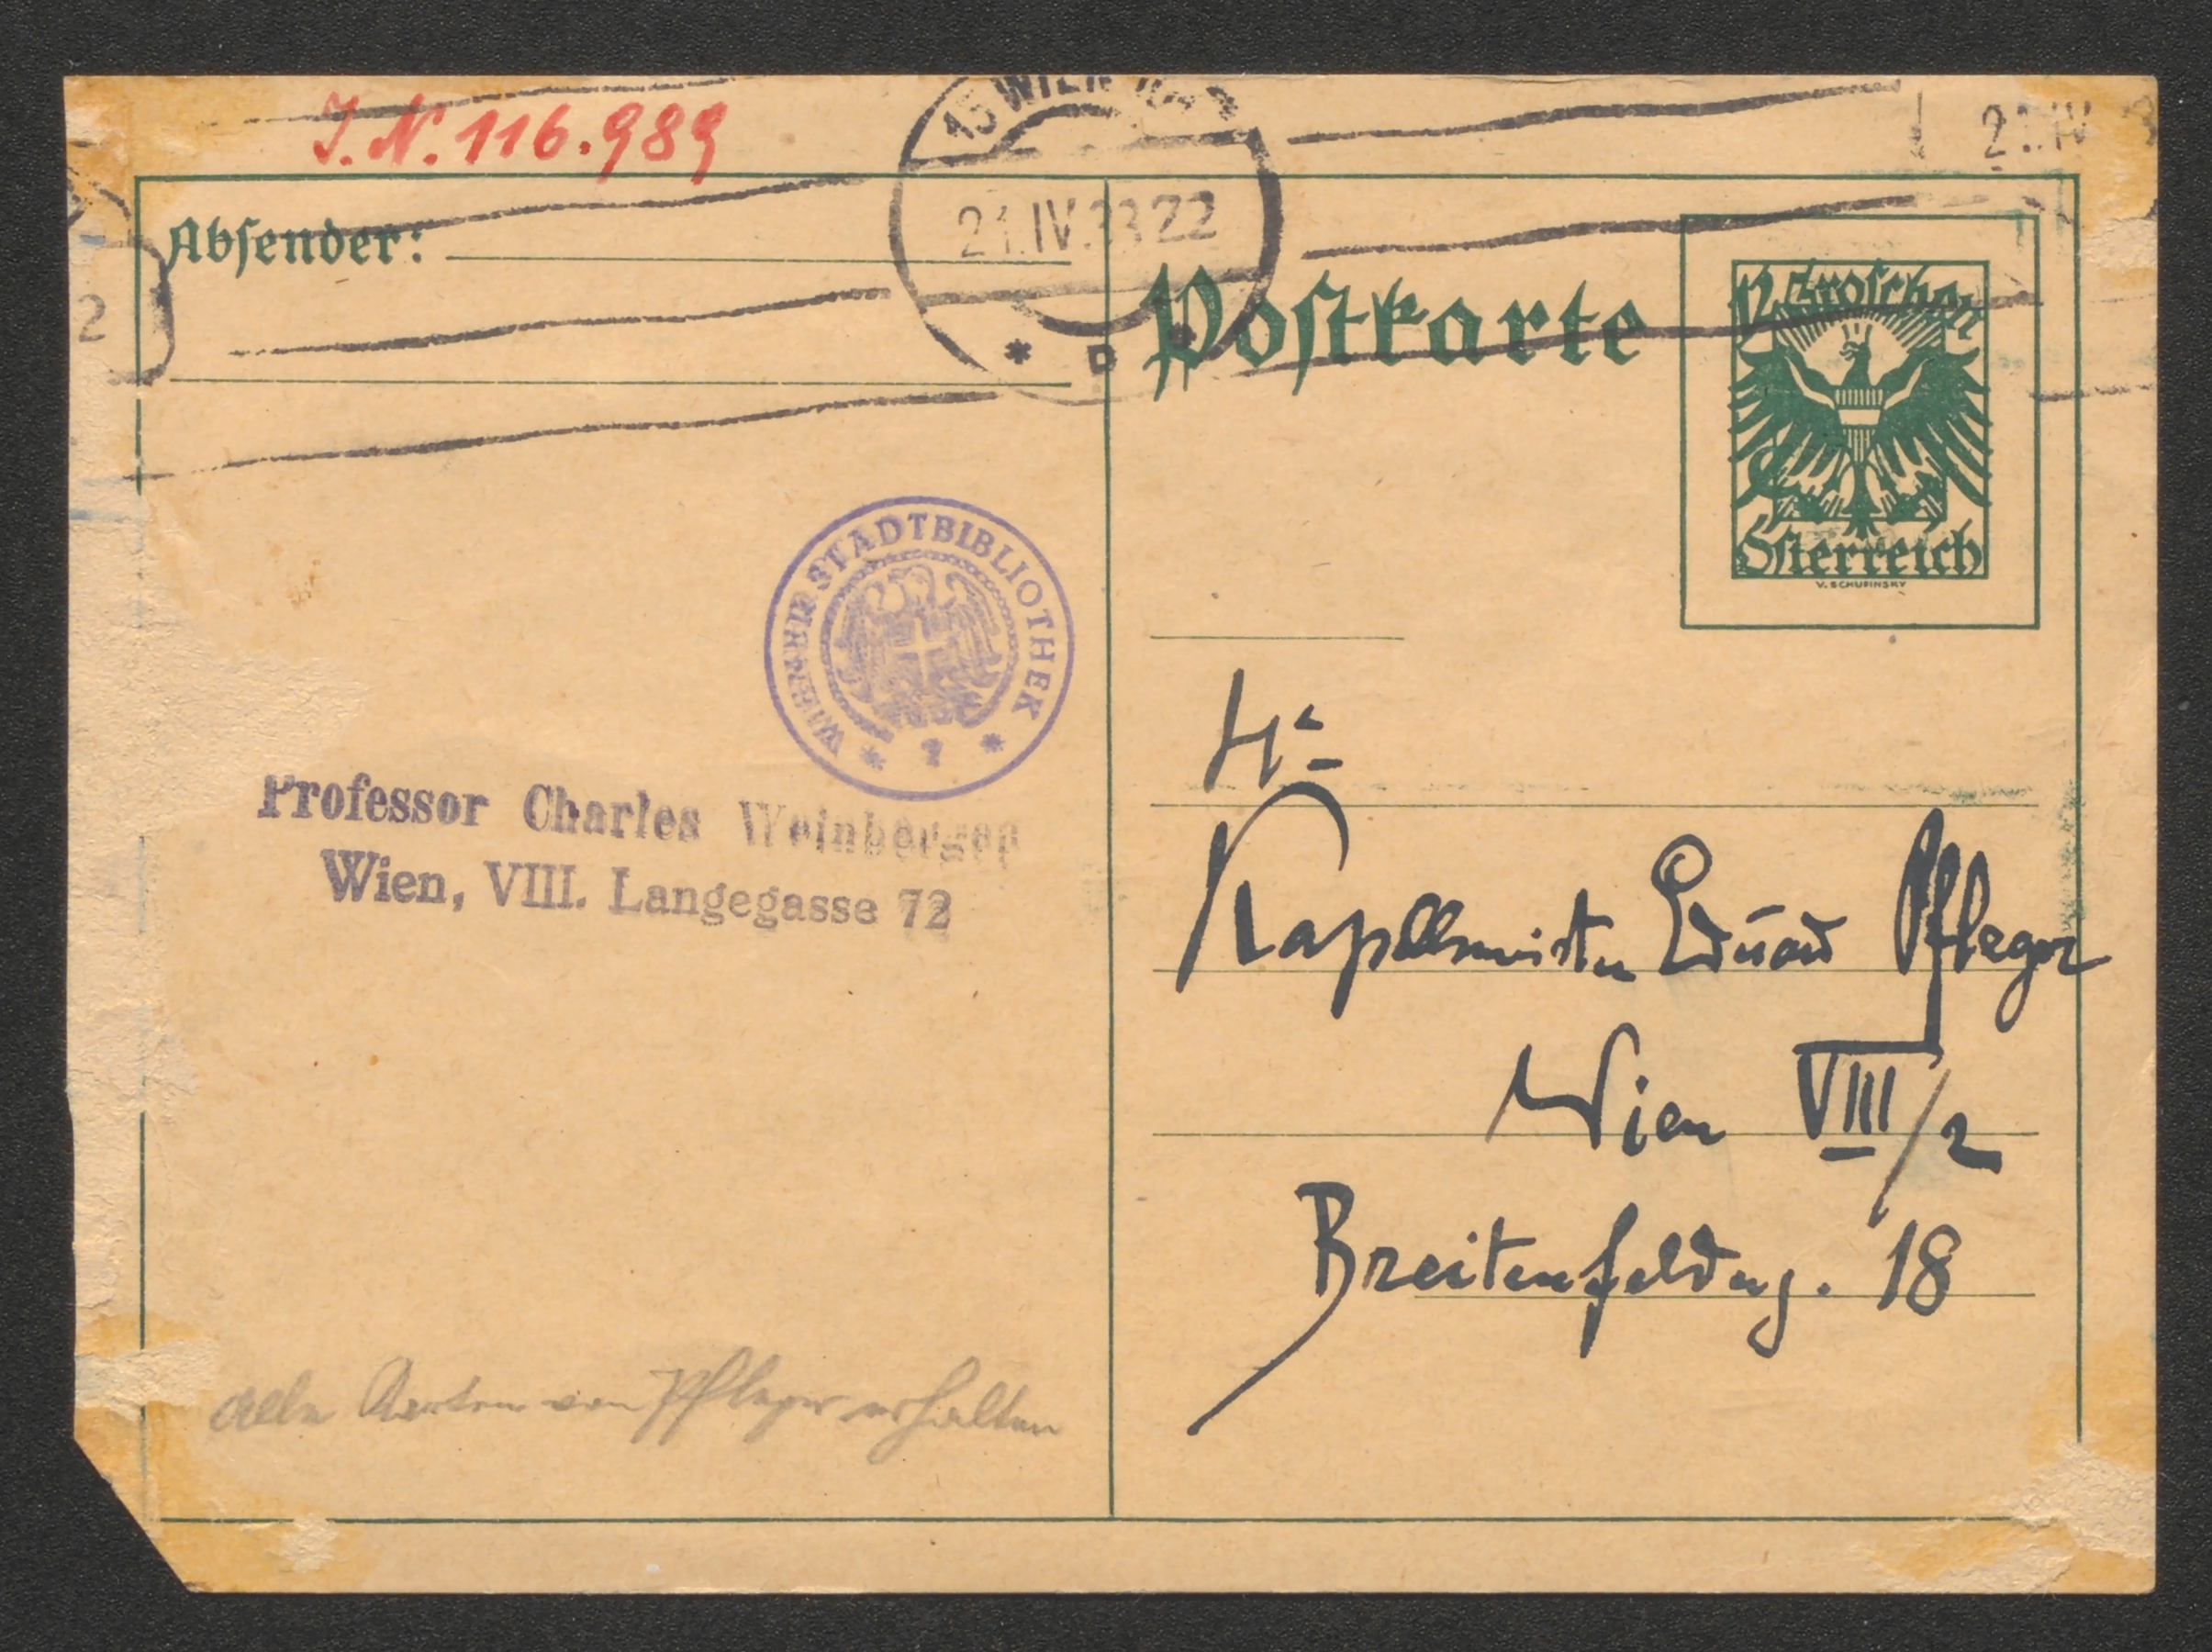 J. N. 116.989
15 WIEN
21.IV.33 22
* D *
21.IV
2
Absender:
Postkarte
12 Groschen
Österreich
V. SCHUFINSKY
WIENER STADTBIBLIOTHEK
Professor Charles Weinberger
Wien, VIII. Langegasse 72
Hr
Kapellmeister Eduard Pfleger
Wien VIII/2
Breitenfelderg. 18
Alle Karten von Pfleger erhalten